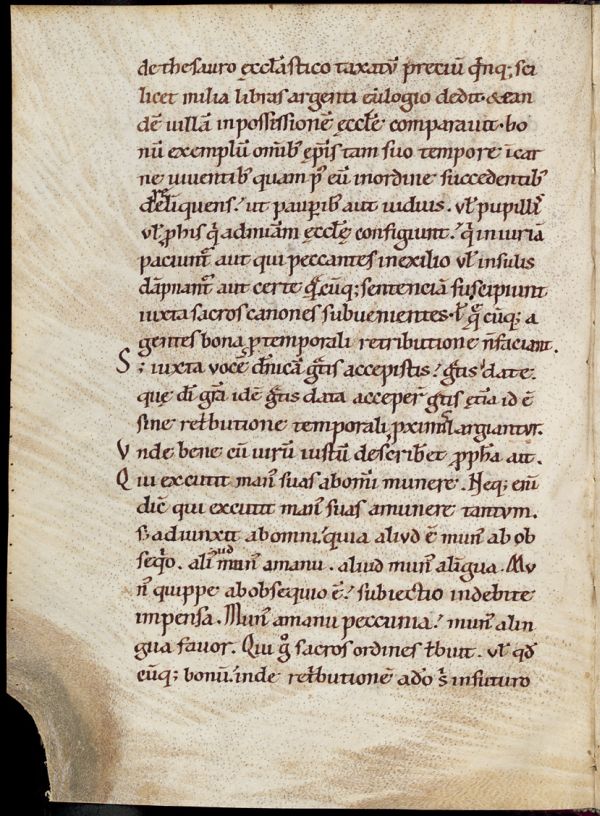 de thesauro ęccl̄astico taxatū preciū q̄nq; sci
licet milia libras argenti eulogio dedit· & ean
dē uillā in possessionē ęccl̄e comparauit· bo
nū exemplū om̄ib; ep̄is tam suo tempore ī car
ne uiuentib; quam p̄ eū in ordine succedentib;
derelīquens! ut paup̄ib; aut uiduis· vł pupillis
vł p̄phis q̄ ad miām ęccl̄ę configiunt! q̄ iniuriā
paciunt̄ aut qui peccantes in exilio vł insulis
dāpnant̄ aut certe q̄cūq; sentenciā suscipiunt
iuxta sacros canones subuenientes· ł q̄cūq; a
gentes bona p̱ temporali retributione n̄ faciant.
S; iuxta vocē dn̄icā gr̄tis accepistis! gr̄tis date.
quę dī gr̄a idē gr̄tis data acceper̄ gr̄tis etiā id ē
sine ret̄butione temporali p̱ximis largiantur.
Vnde bene eū uirū iustū describ̄et p̱pha ait.
Qui excutit man̄ suas ab om̄i munere. Neq; eni
dic̄ qui excutit man̄ suas a munere tantum.
s; adiunxit ab omni! quia aliud ē mun̄ ab ob
seq̄o. aliud mun̄ a manu. aliud mun̄ a līgua. Mu
n̄ quippe ab obsequio ē! subiectio indebite
impensa. Mun̄ a manu peccunia! mun̄ a lin
gua fauor. Qui g̊ sacros ordines t̄buit. vł qd̄
cūq; bonū! inde ret̄butionē a dō s; in futuro